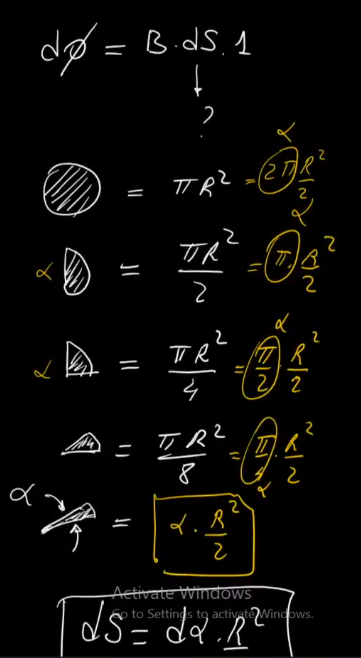 dϕ = B.dS.1
?
= πR² = 2π R²/2
α
α = πR²/2 = π. R²/2
α
α = πR²/4 = π/2 . R²/2
α
= πR²/8 = π/4 . R²/2
α
α = α . R²/2
Activate Windows
Go to Settings to activate Windows.
dS = dα . R²